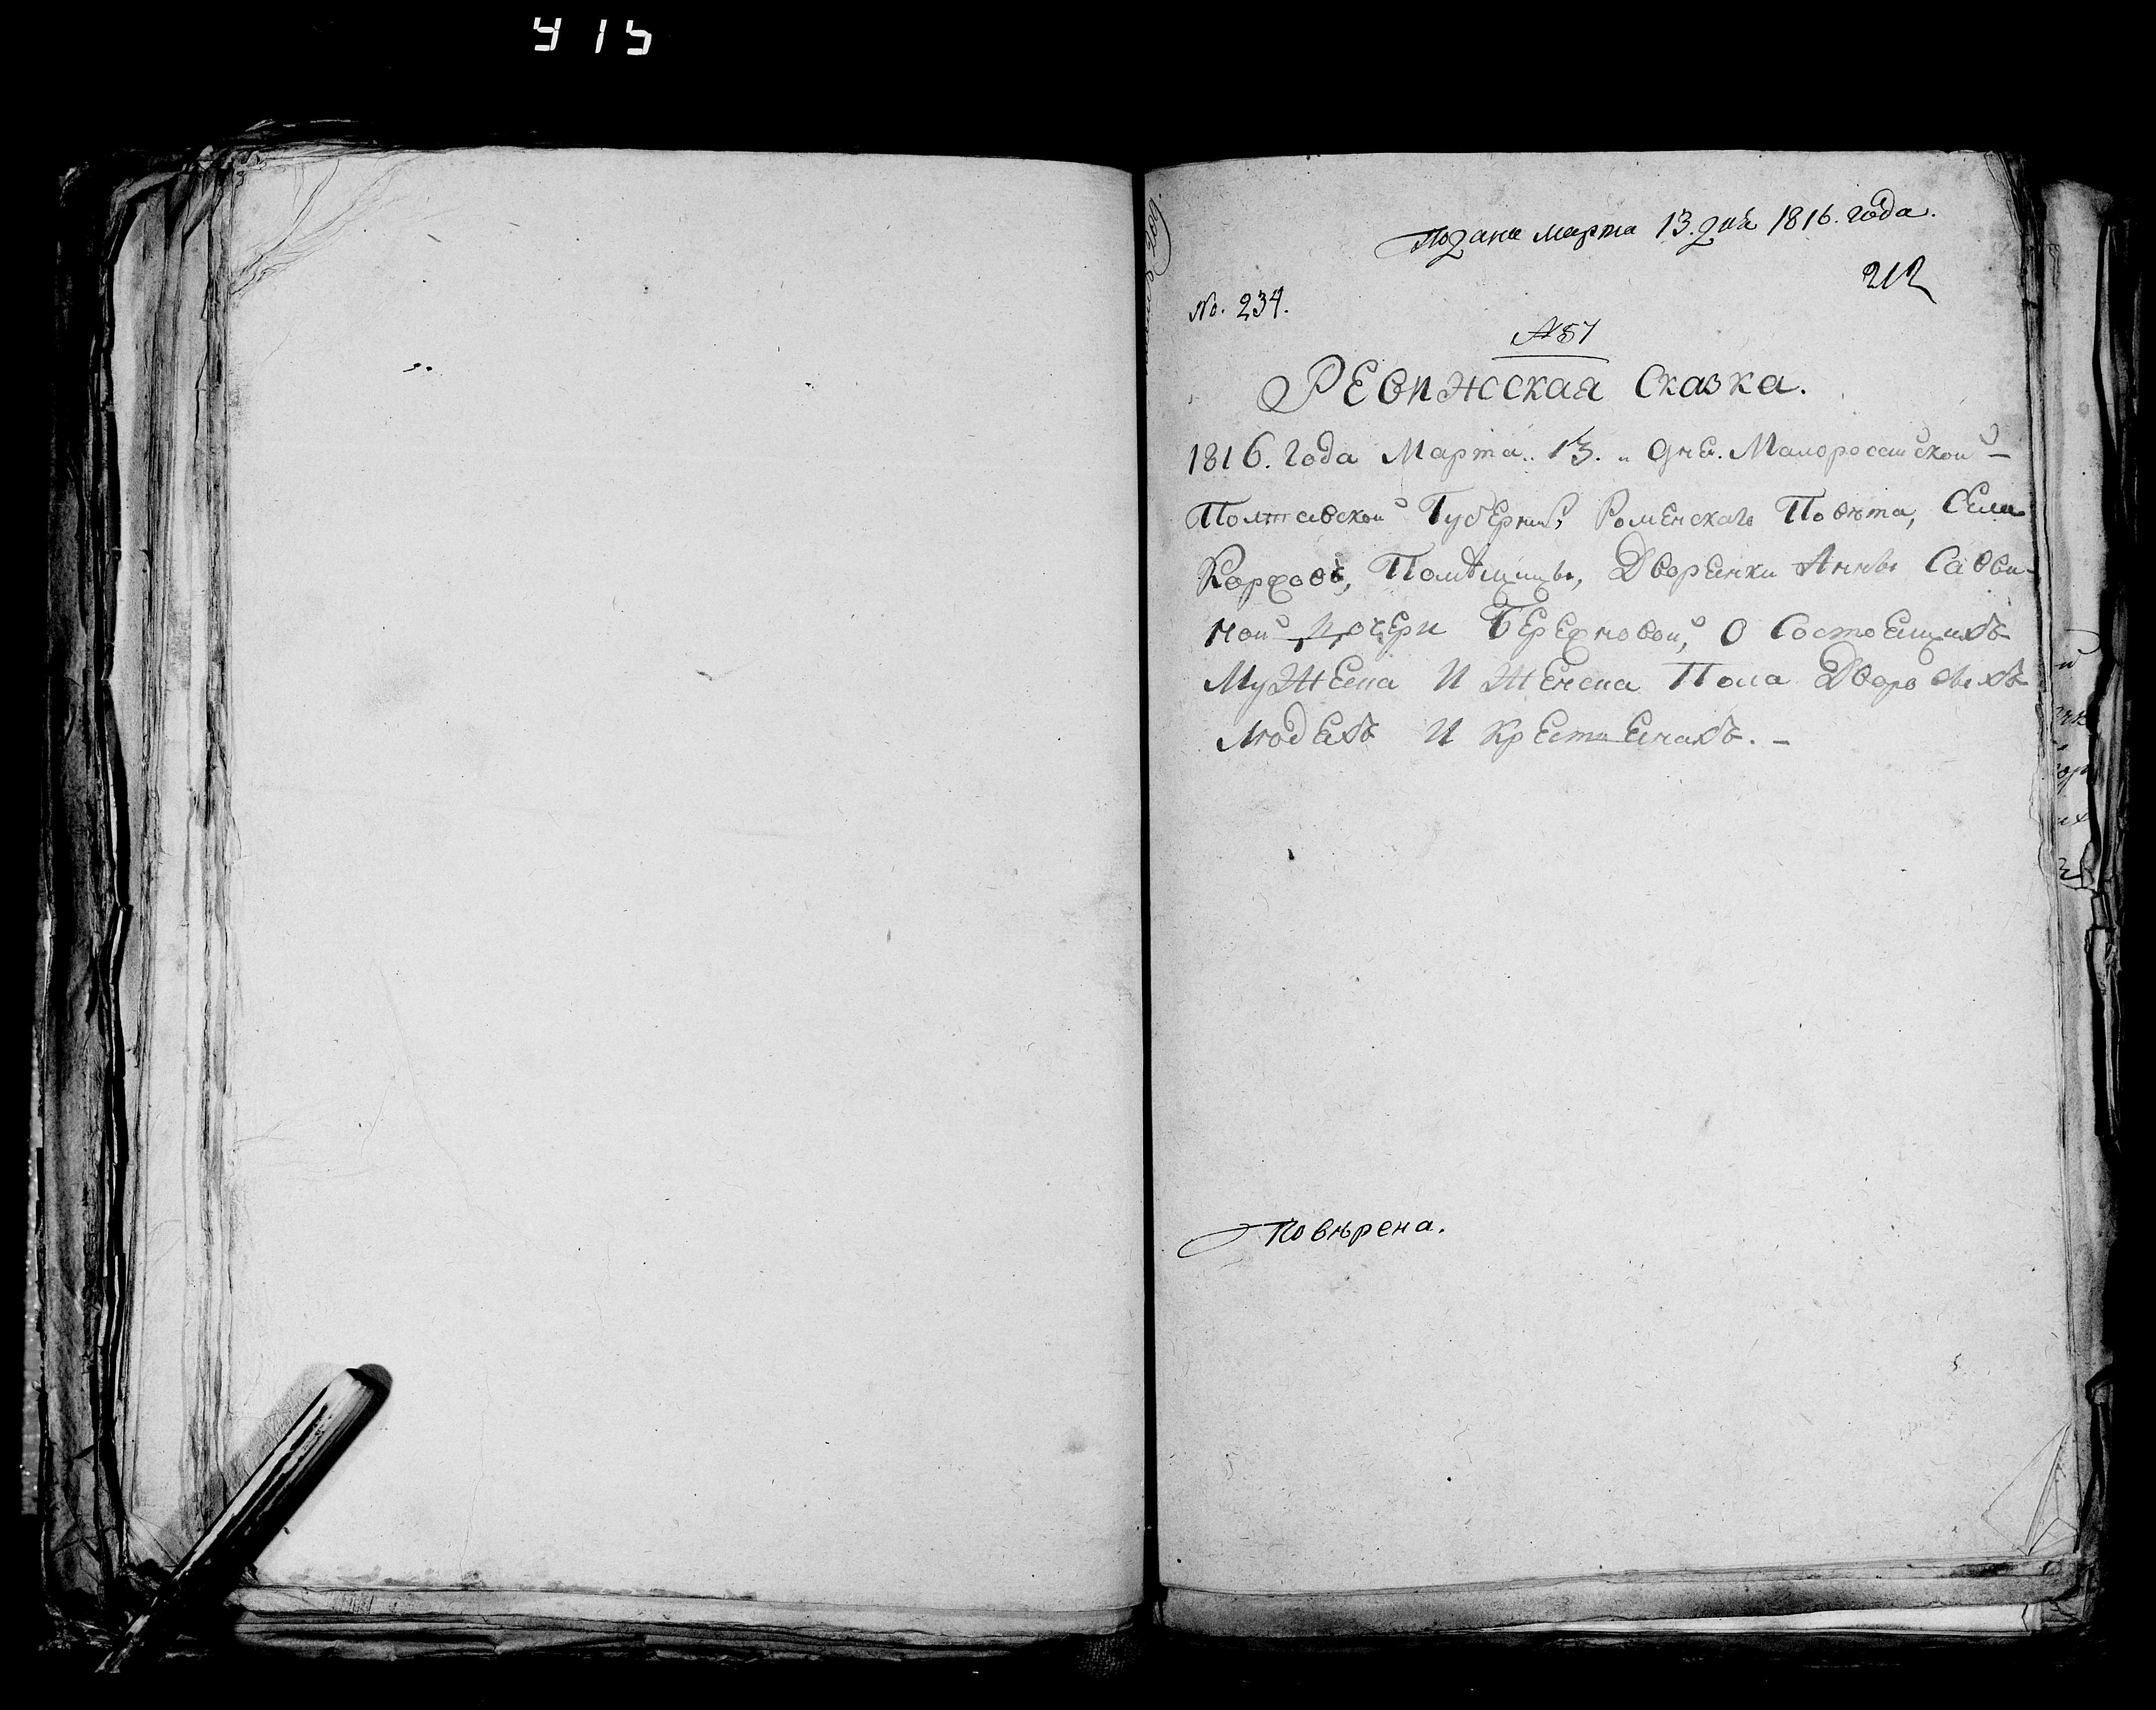 415
Подана марта 13. дня 1816. года.
212
No. 234.
№ 87
Ревижская Сказка.
1816. Года Марта.. 13. „ дня. Малоросийской
Полтавской Губернии, Роменскаго Повѣта, Села
Коровъ, Помѣщицы, Дворянки Анны Савви-
ной дочери Берехновой, О Состоящихъ
Мужеска И Женска Пола Дворовыхъ
Людяхъ И Крестьянахъ. –
Повѣрена.